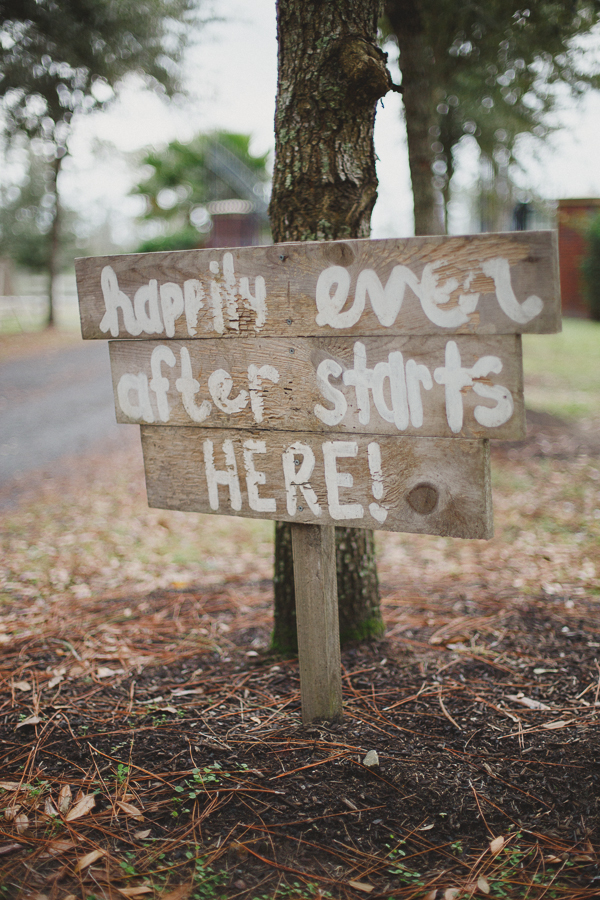 happily ever
after starts
HERE!